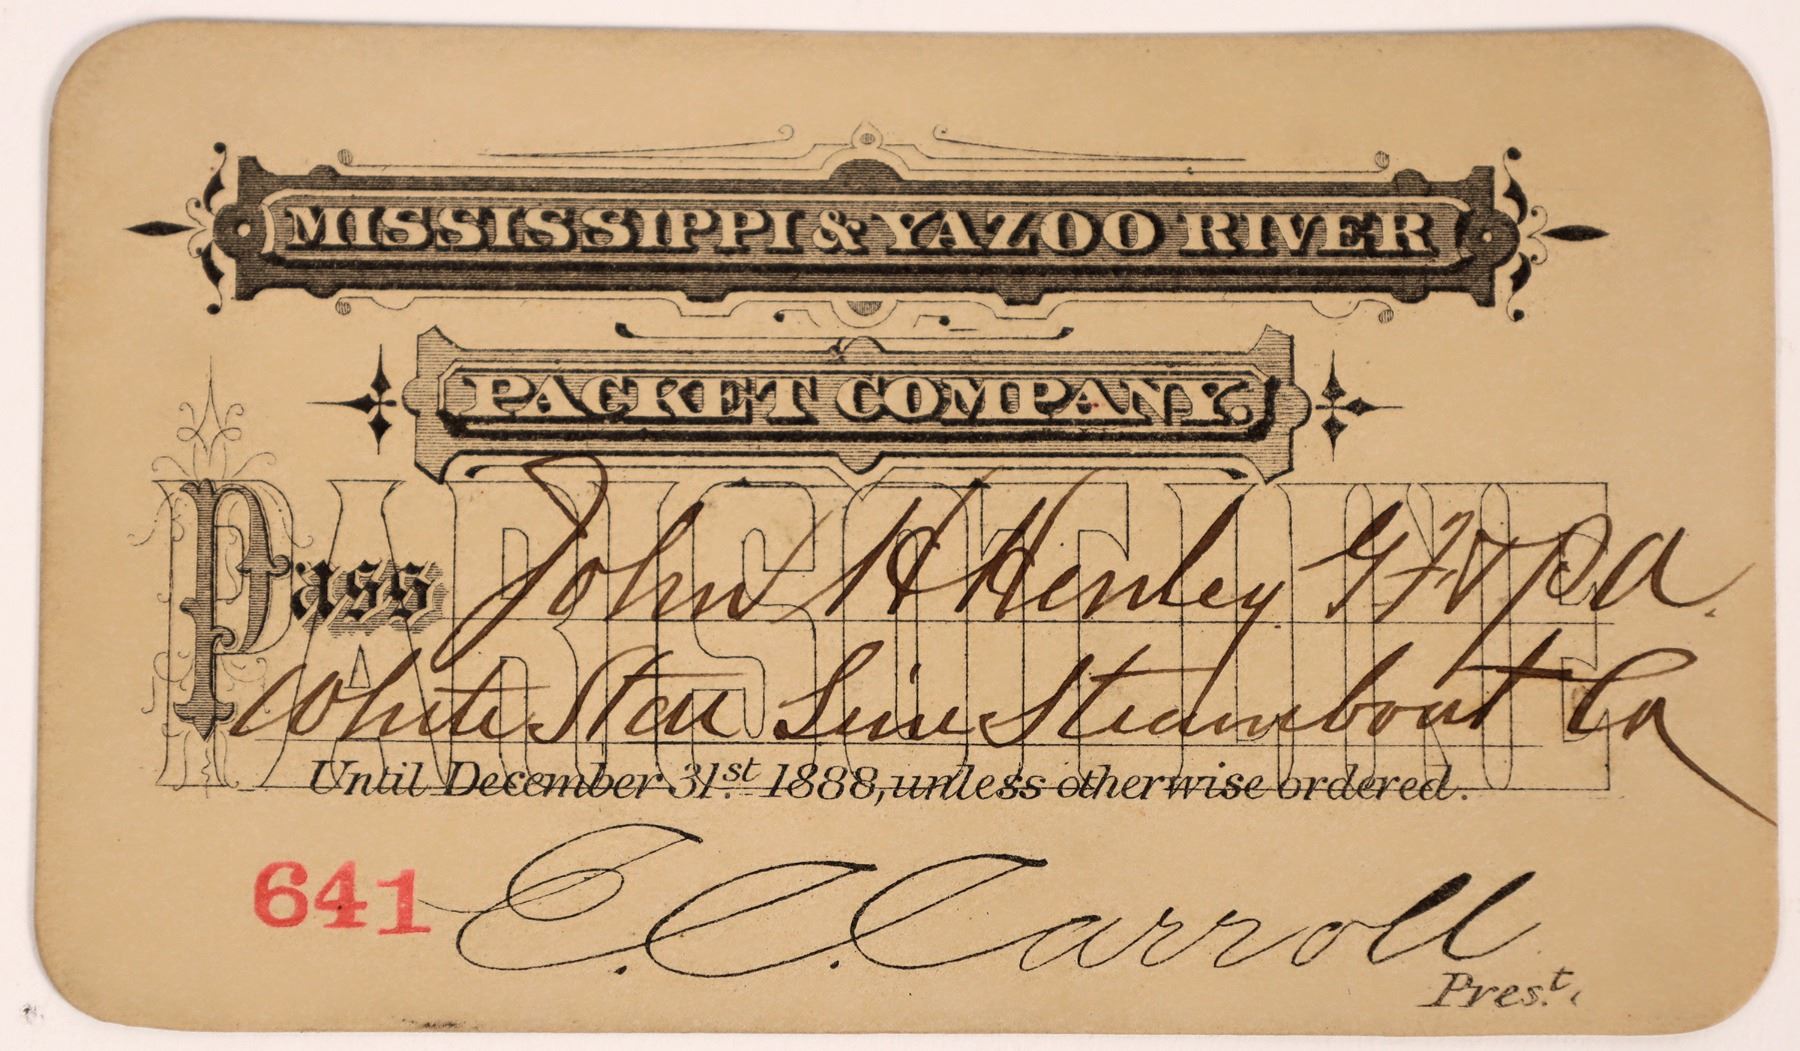 MISSISSIPPI & YAZOO RIVER
PACKET COMPANY.
PARISOT LINE
Pass John H Henley G F & P A.
White Star Line Steamboat Co
Until December 31st. 1888, unless otherwise ordered.
641 E. C. Carroll
Pres.t.